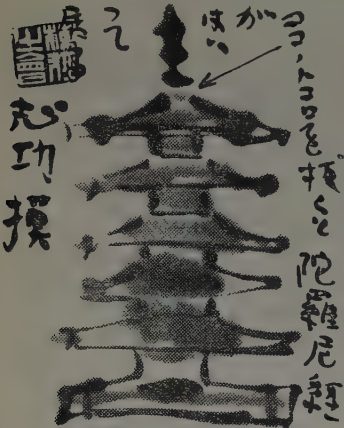 ココノトコロを抜くと陀羅尼経
が
はい
って
志功摸